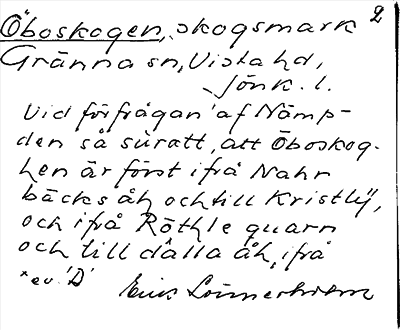 2
Öboskogen, skogsmark
Gränna sn, Vista hd,
Jönk. l.
Vid förfrågan af Nämp-
den så suratt, att Öboskog-
hen är först ifrå Nahr
bäcks åh och till Kristlÿ,
och ifrå Röthle quarn
och till dålla åh, ifrå
× ev. 'D'
Erik